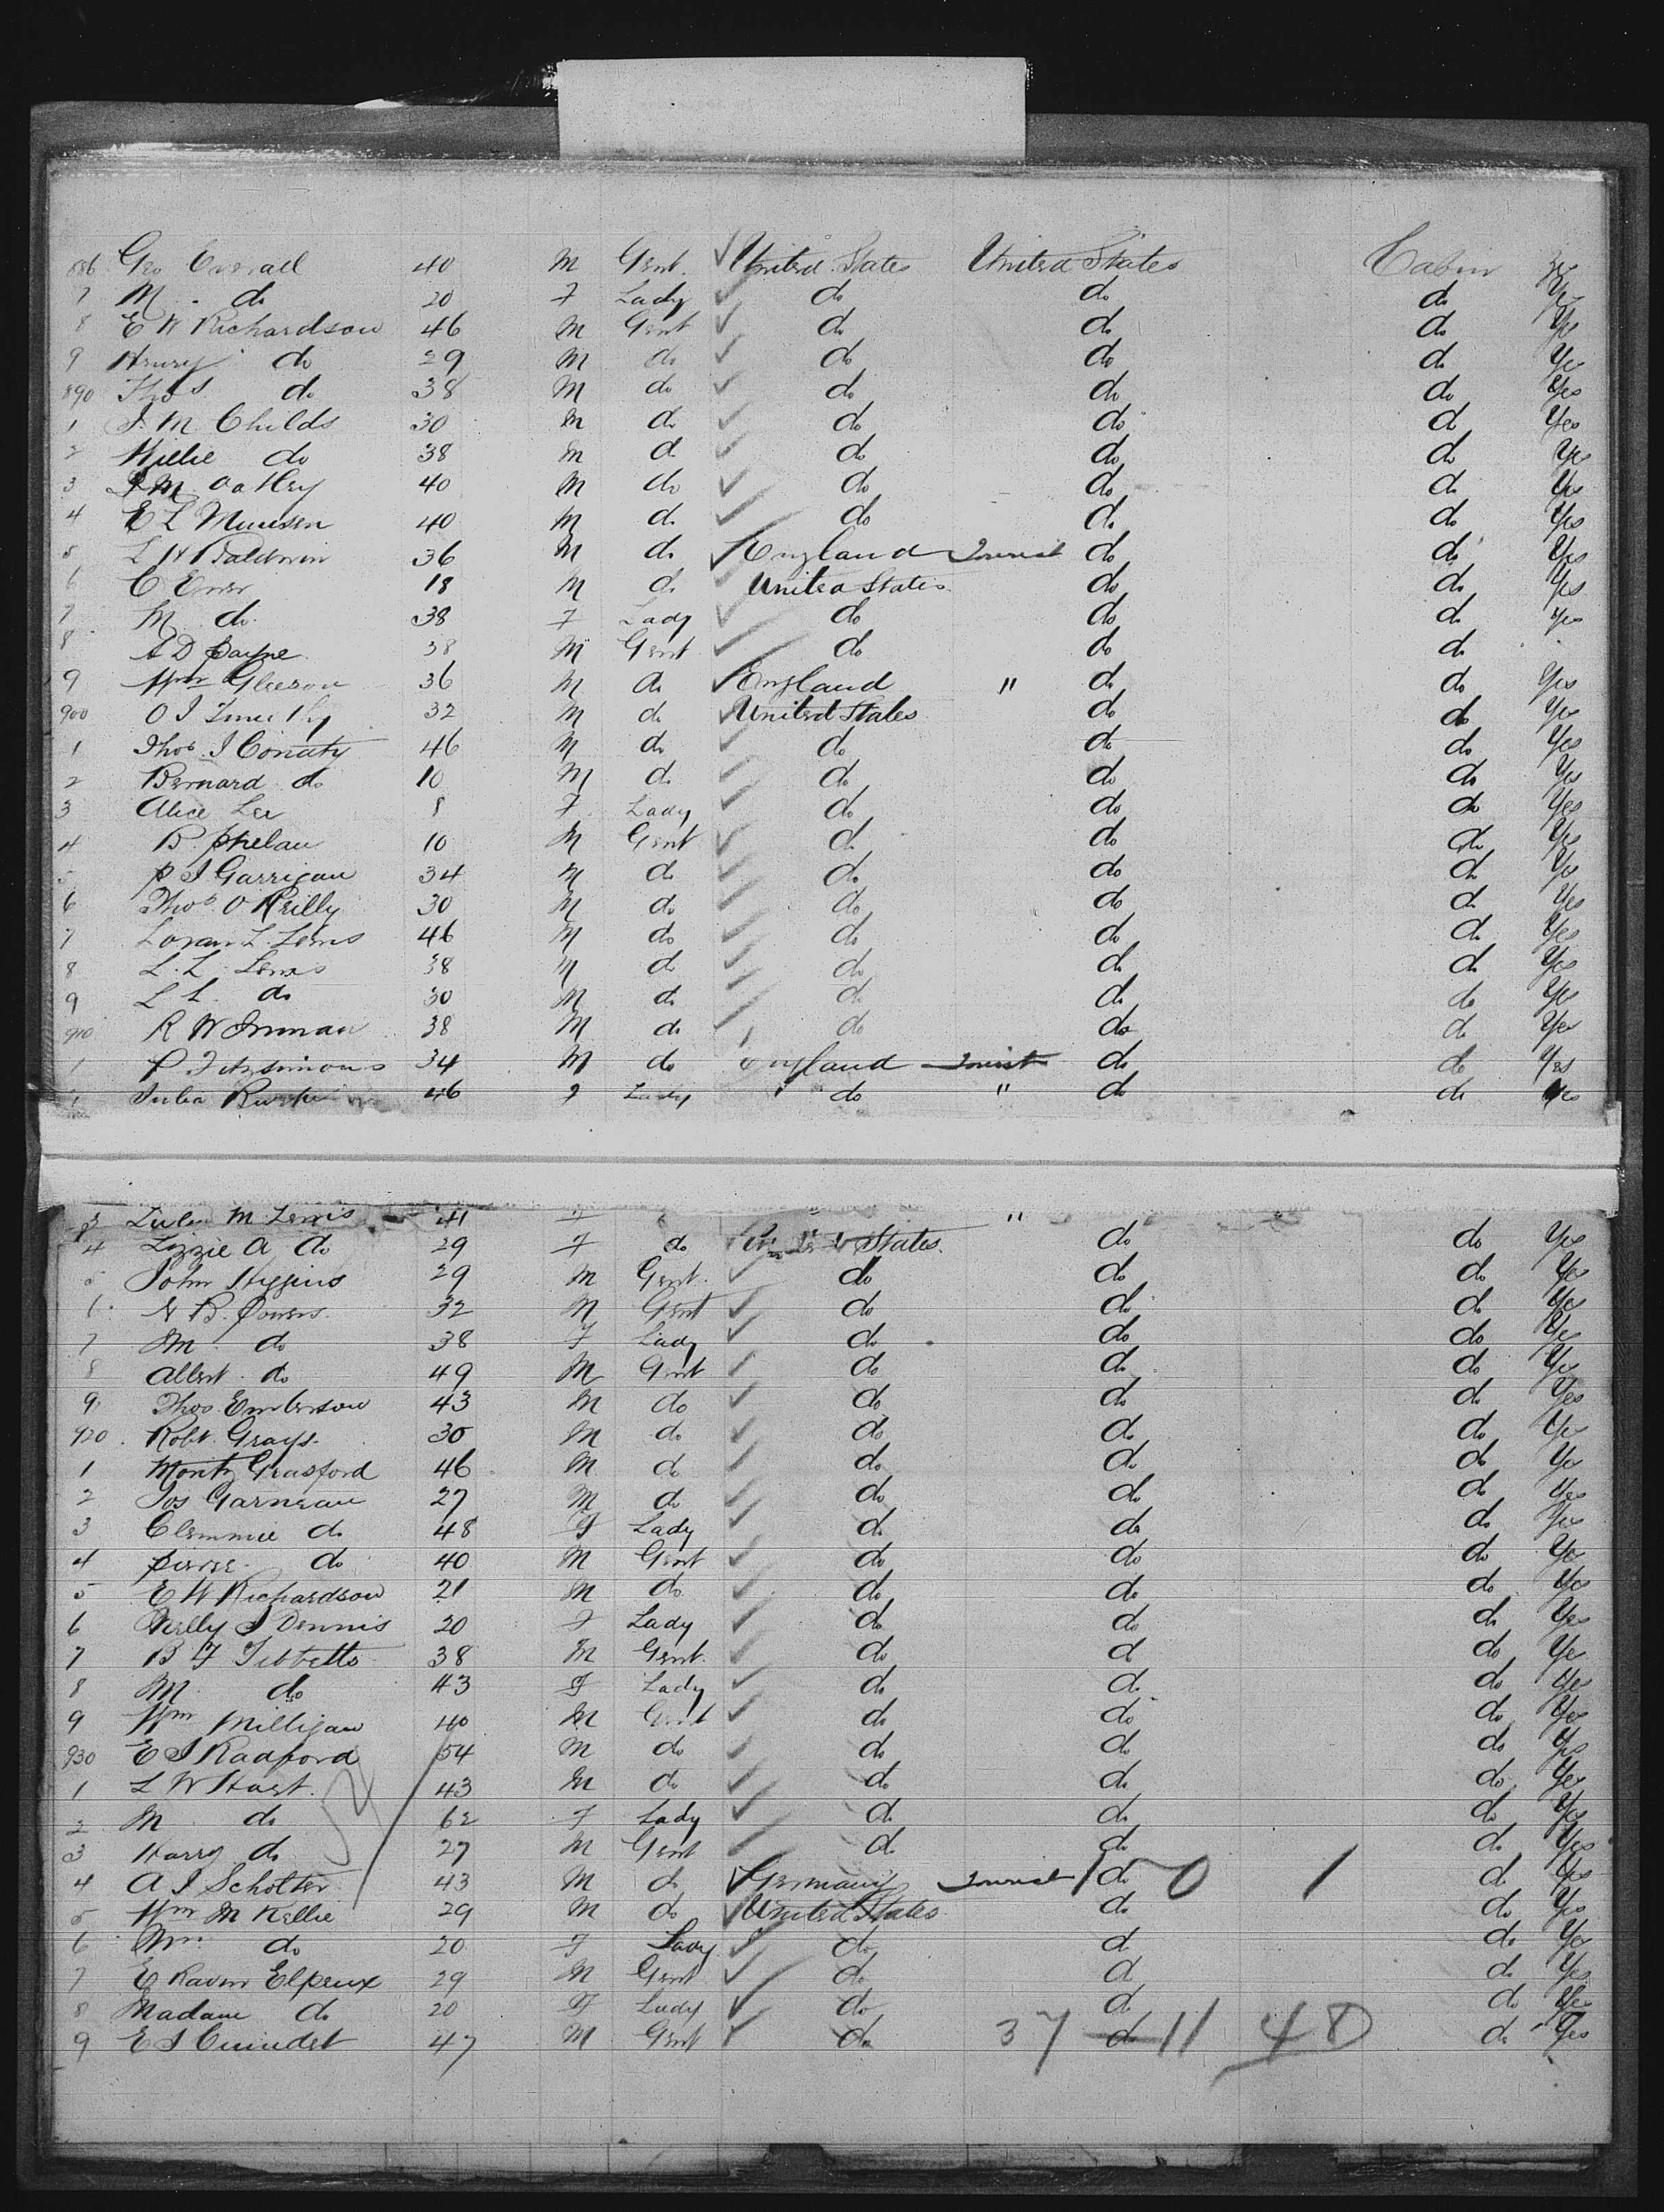 886 Geo Overall 40 M Gent. United States United States Cabin Yes
7 M. do 20 F Lady do do do Yes
8 E W Richardson 46 M Gent do do do Yes
9 Henry do 29 M do do do do Yes
890 Thos do 38 M do do do do Yes
1 J. M. Childs 30 M do do do do Yes
2 Willie do 38 M do do do do Yes
3 J M Oatley 40 M do do do do Yes
4 E L Munsen 40 M do do do do Yes
5 L H Baldwin 36 M do England Tourist do do Yes
6 C 18 M do United States do do Yes
7 M do 38 F Lady do do do Yes
8 A D Payne 38 M Gent do do do
9 Wm Gleeson 36 M do England " do do Yes
900 O J 32 M do United States do do Yes
1 Thos. J Conaty 46 M do do do do Yes
2 Bernard do 10 M do do do do Yes
3 Alice Lee 8 F Lady do do do Yes
4 B. Phelan 10 M Gent do do do Yes
5 P J Garrigan 34 M do do do do Yes
6 Thos. O Reilly 30 M do do do do Yes
7 Loran L. Lewis 46 M do do do do Yes
8 L. L. Lewis 38 M do do do do Yes
9 L L. do 30 M do do do do Yes
910 R W Inman 38 M do do do do Yes
1 P Fitzsimons 34 M do England Tourist do do Yes
Julia 46 F Lady do " do do Yes
3 M Lewis 41 F "
4 Lizzie A do 29 F do States do do Yes
5 John Higgins 29 M Gent. do do do Yes
6 B. Powers. 32 M Gent do do do Yes
7 M do 38 F Lady do do do Yes
8 Albert do 49 M Gent do do do Yes
9 Thos. Emberson 43 M do do do do Yes
920 Robt. Grays. 30 M do do do do Yes
1 Monty Grasford 46 M do do do do Yes
2 Jos Garneau 27 M do do do do Yes
3 Clemmie do 48 F Lady do do do Yes
4 Pierre do 40 M Gent do do do Yes
5 E W Richardson 21 M do do do do Yes
6 Nelly J Dennis 20 F Lady do do do Yes
7 B F Tibbetts 38 M Gent. do do do Yes
8 M do 43 F Lady do do do Yes
9 Wm Milligan 40 M Gent do do do Yes
930 E J Radford 54 M do do do do Yes
1 L W Hast. 43 M do do do do Yes
2 M do 62 F Lady do do do Yes
3 Harry do 27 M Gent do do do Yes
4 A J Scholter 43 M do Germany Tourist 1 do 0 1 do Yes
5 Wm M Kellie 29 M do United States do do Yes
6 Mrs. do 20 F Lady do do do Yes
7 E Elpeux 29 M Gent do do do Yes
8 Madame do 20 F Lady do do do Yes
9 E J 47 M Gent do 37 do 11 48 do Yes